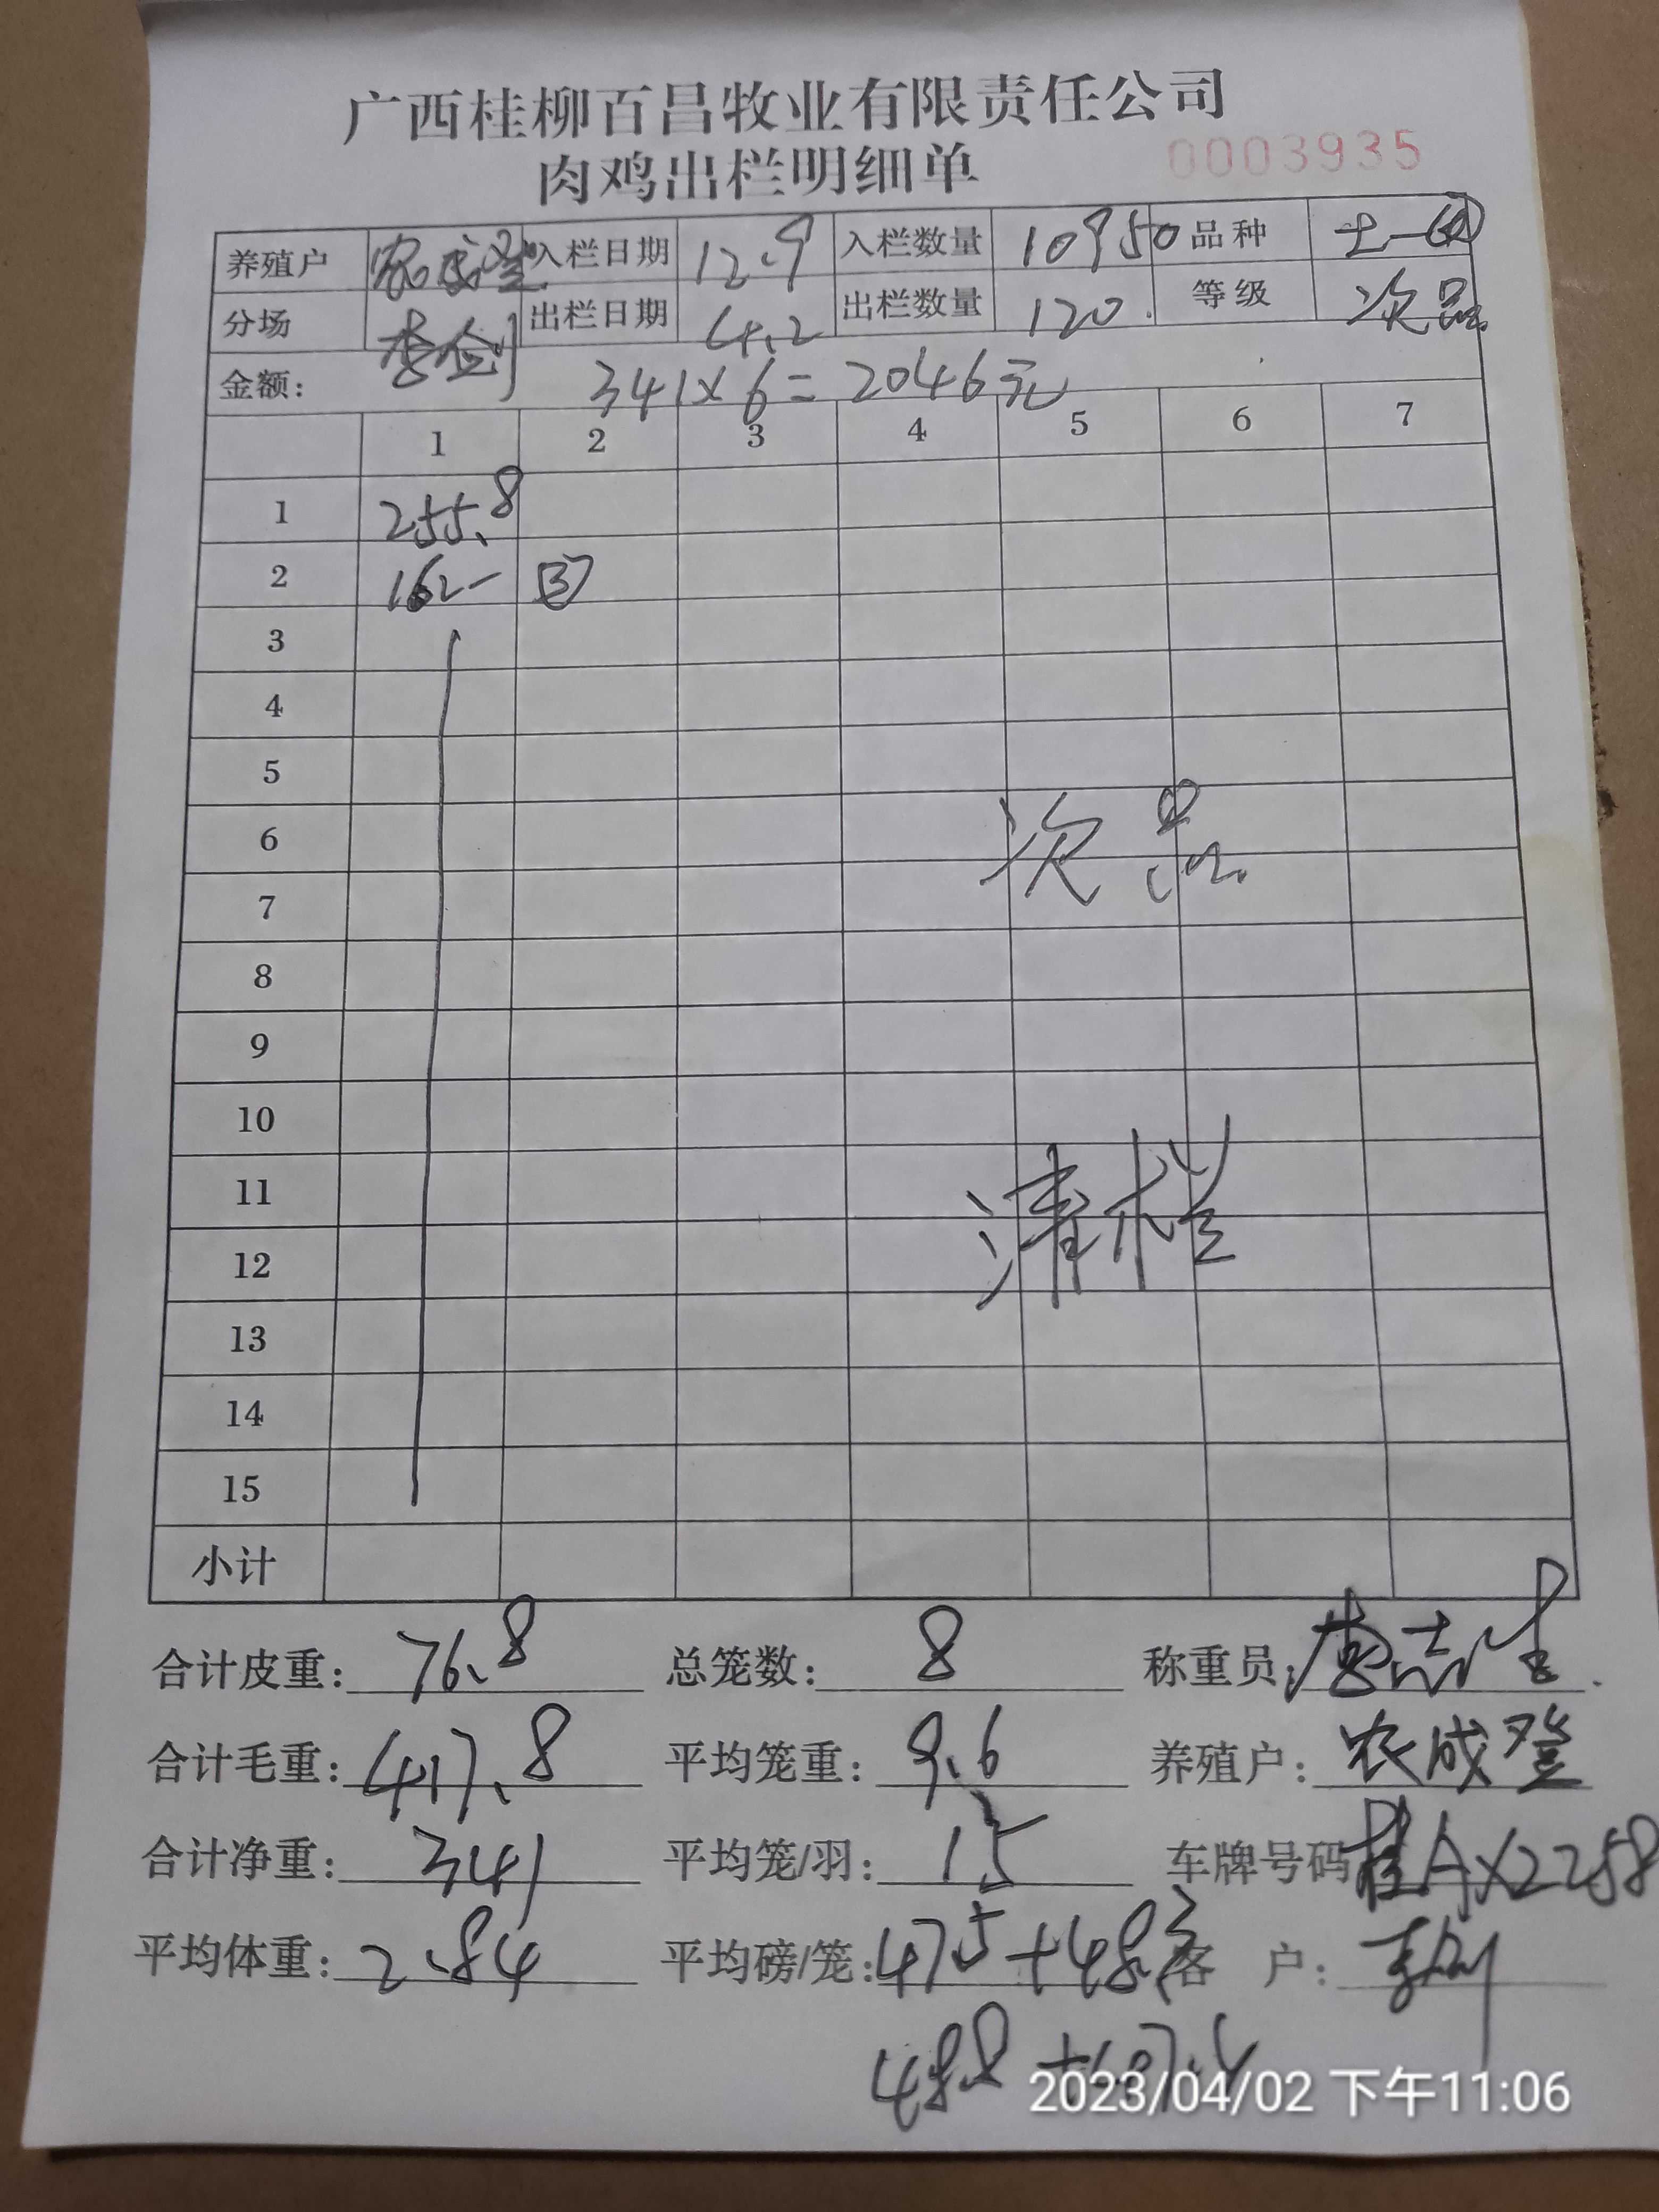 广西桂柳百昌牧业有限责任公司
肉鸡出栏明细单 0003935
养殖户 农成登 入栏日期 12.9 入栏数量 10950 品种 土一
分场 出栏日期 4.2 出栏数量 120. 等级 次品
金额: 341×6=2046元
1 2 3 4 5 6 7
1 255.8
2 162-
3
4
5
6
次品
7
8
9
10
11
清栏
12
13
14
15
小计
合计皮重: 76.8 总笼数: 8 称重员:
合计毛重: 417.8 平均笼重: 9.6 养殖户: 农成登
合计净重: 341 平均笼/羽: 15 车牌号码 桂AX2258
平均体重: 2.84 平均磅/笼: 47.5+48.3 客 户:
48.8
2023/04/02 下午11:06